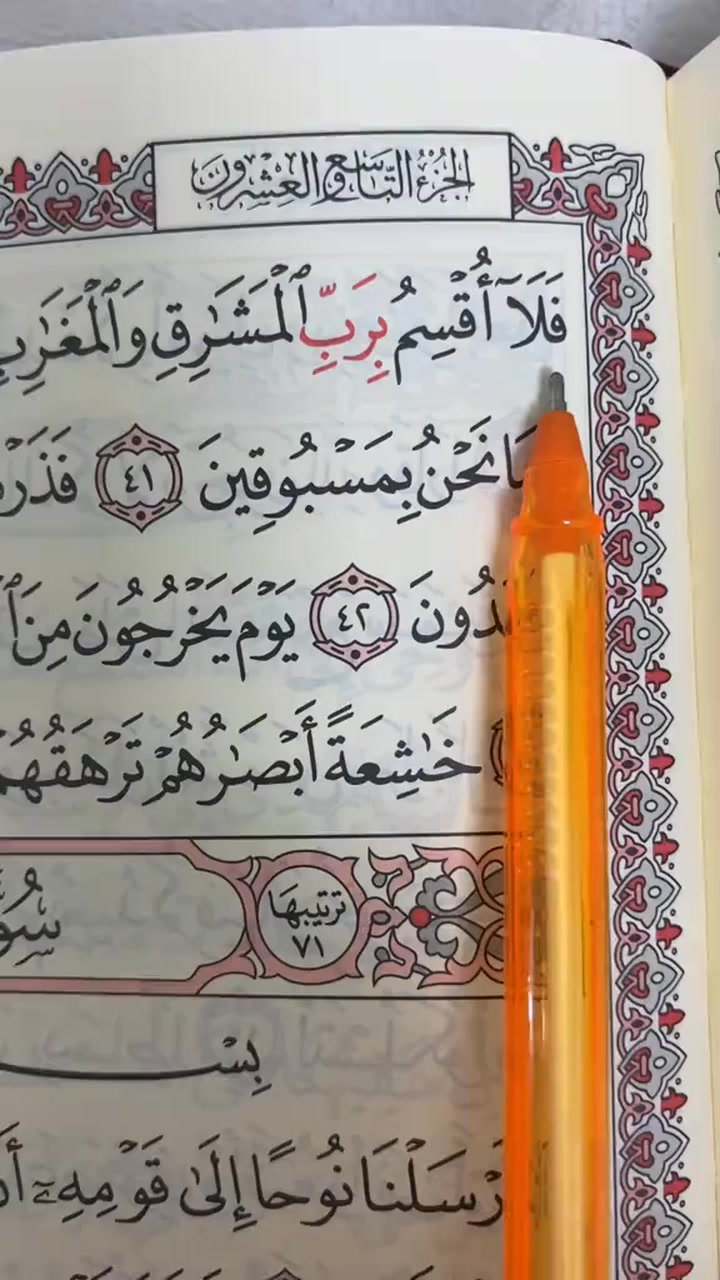 الجزء التاسع والعشرون
فَلَآ أُقْسِمُ بِرَبِّ ٱلْمَشَٰرِقِ وَٱلْمَغَٰرِبِ
نَحْنُ بِمَسْبُوقِينَ ٤١
٤٢ يَوْمَ يَخْرُجُونَ مِنَ
خَٰشِعَةً أَبْصَٰرُهُمْ تَرْهَقُهُمْ
ترتيبها
٧١
بِسْ
نُوحًا إِلَىٰ قَوْمِهِۦٓ